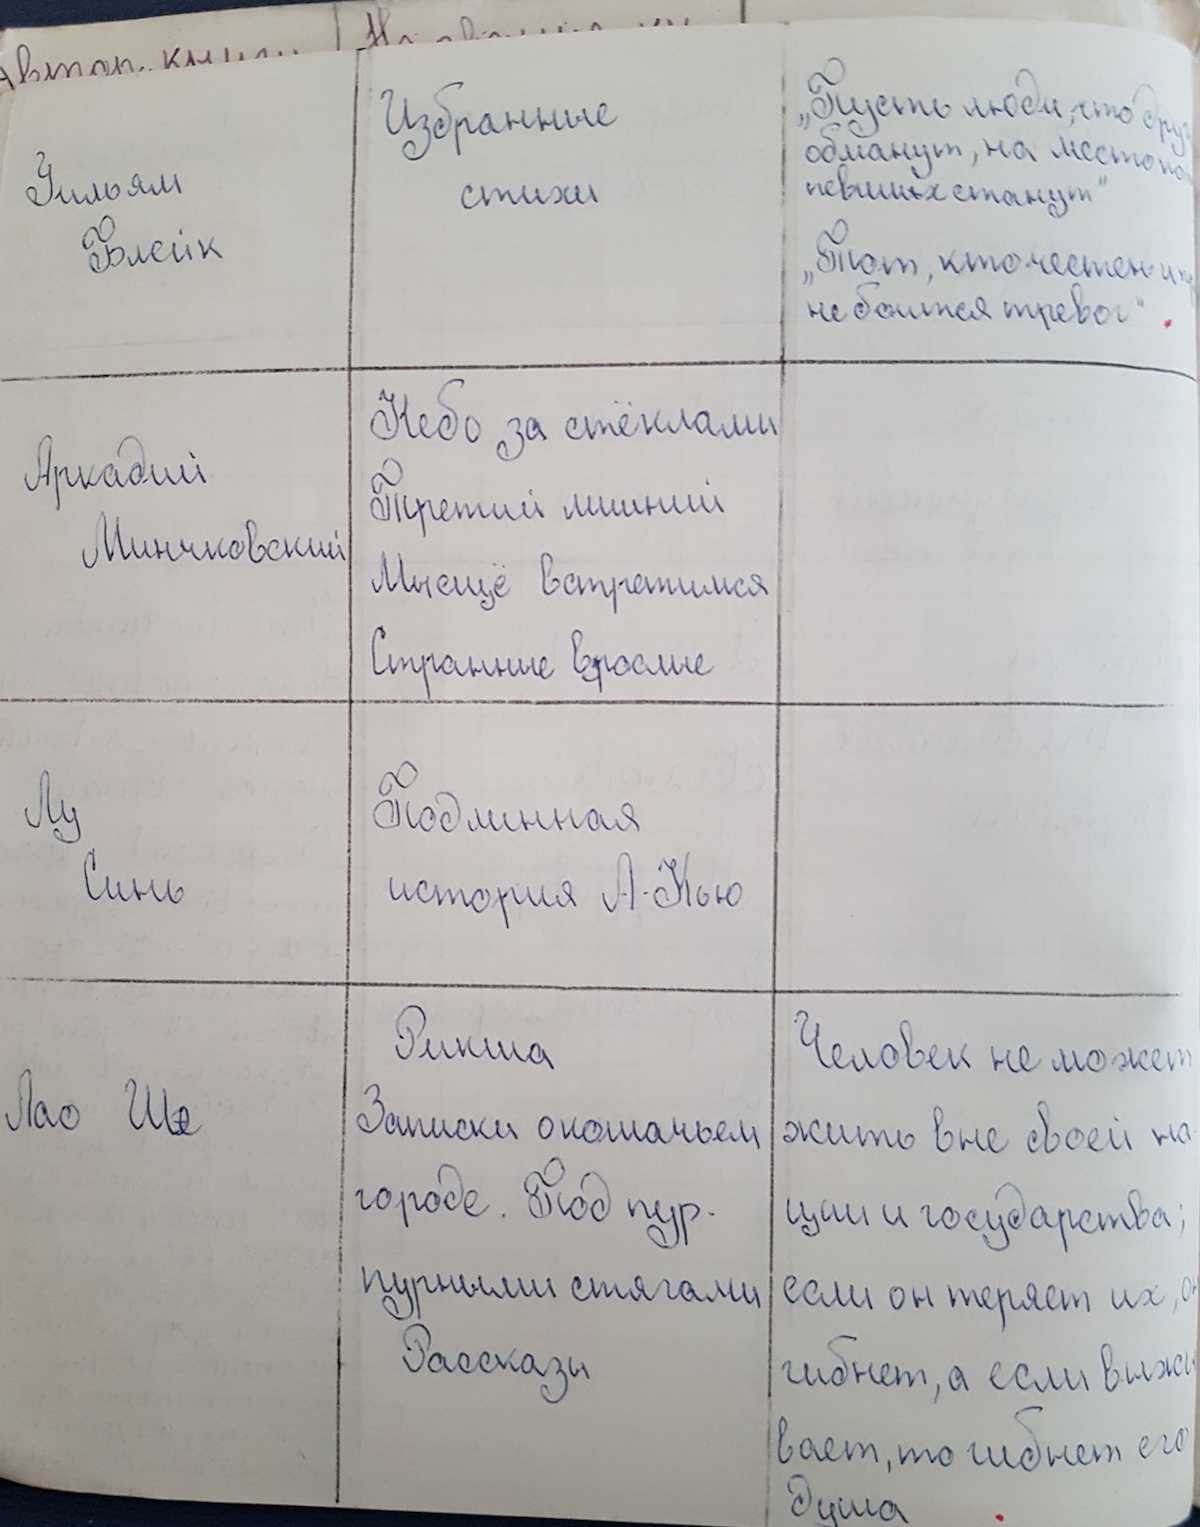 Автор книги
Название
Уильям
Блейк
Избранные
стихи
„Пусть люди, что друг
обманут, на место
певших станут“
„Тот, кто честен и
не боится тревог“.
Аркадий
Минчковский
Небо за стёклами
Третий лишний
Мы ещё встретимся
Странные взрослые
Лу
Синь
Подлинная
история А-Кью
Лао Шэ
Рикша
Записки о кошачьем
городе. Под пур-
пурными стягами
Рассказы
Человек не может
жить вне своей на-
ции и государства;
если он теряет их, он
гибнет, а если выжи
вает, то гибнет его
душа.